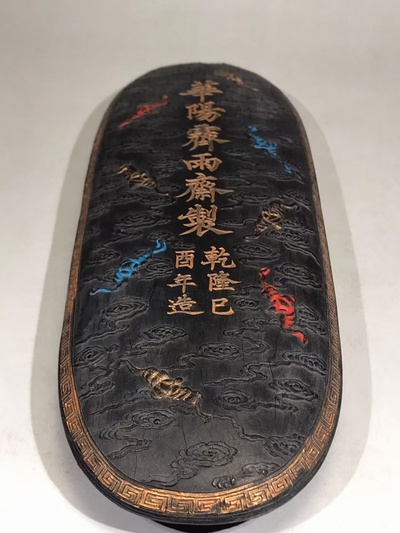 華陽齊雨齋製
乾隆巳
酉年造